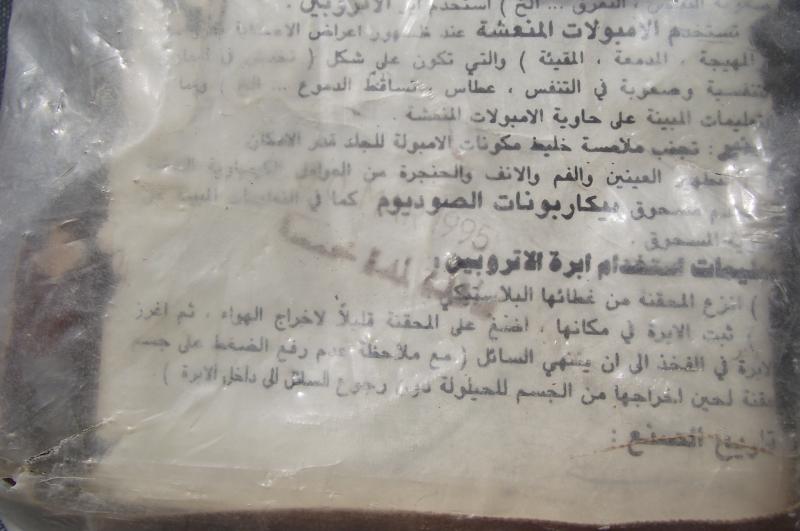 صعوبة التنفس ، التعرق ... الخ ) استخدم ابر الاتروبين .
تستخدم الامبولات المنعشة عند ظهور اعراض الاصابة
المهيجة ، المدمعة ، المقيئة ) والتي تكون على شكل (
تنفسية وصعوبة في التنفس ، عطاس ، تساقط الدموع ... الخ )
التعليمات المبينة على حاوية الامبولات المنعشة .
: تجنب ملامسة خليط مكونات الامبولة للجلد قدر الامكان
العينين والفم والانف والحنجرة من العوامل الكيمياوية
مسحوق بيكاربونات الصوديوم كما في التعليمات
المسحوق .
1995
تعليمات استخدام ابرة الاتروبين :
) انزع المحقنة من غطائها البلاستيكي
) ثبت الابرة في مكانها ، اضغط على المحقنة قليلاً لاخراج الهواء ، ثم اغرز
الابرة في الفخذ الى ان ينتهي السائل ( مع ملاحظة عدم رفع الضغط على جسم
المحقنة لحين اخراجها من الجسم للحيلولة دون رجوع السائل الى داخل الابرة )
تاريخ الصنع :